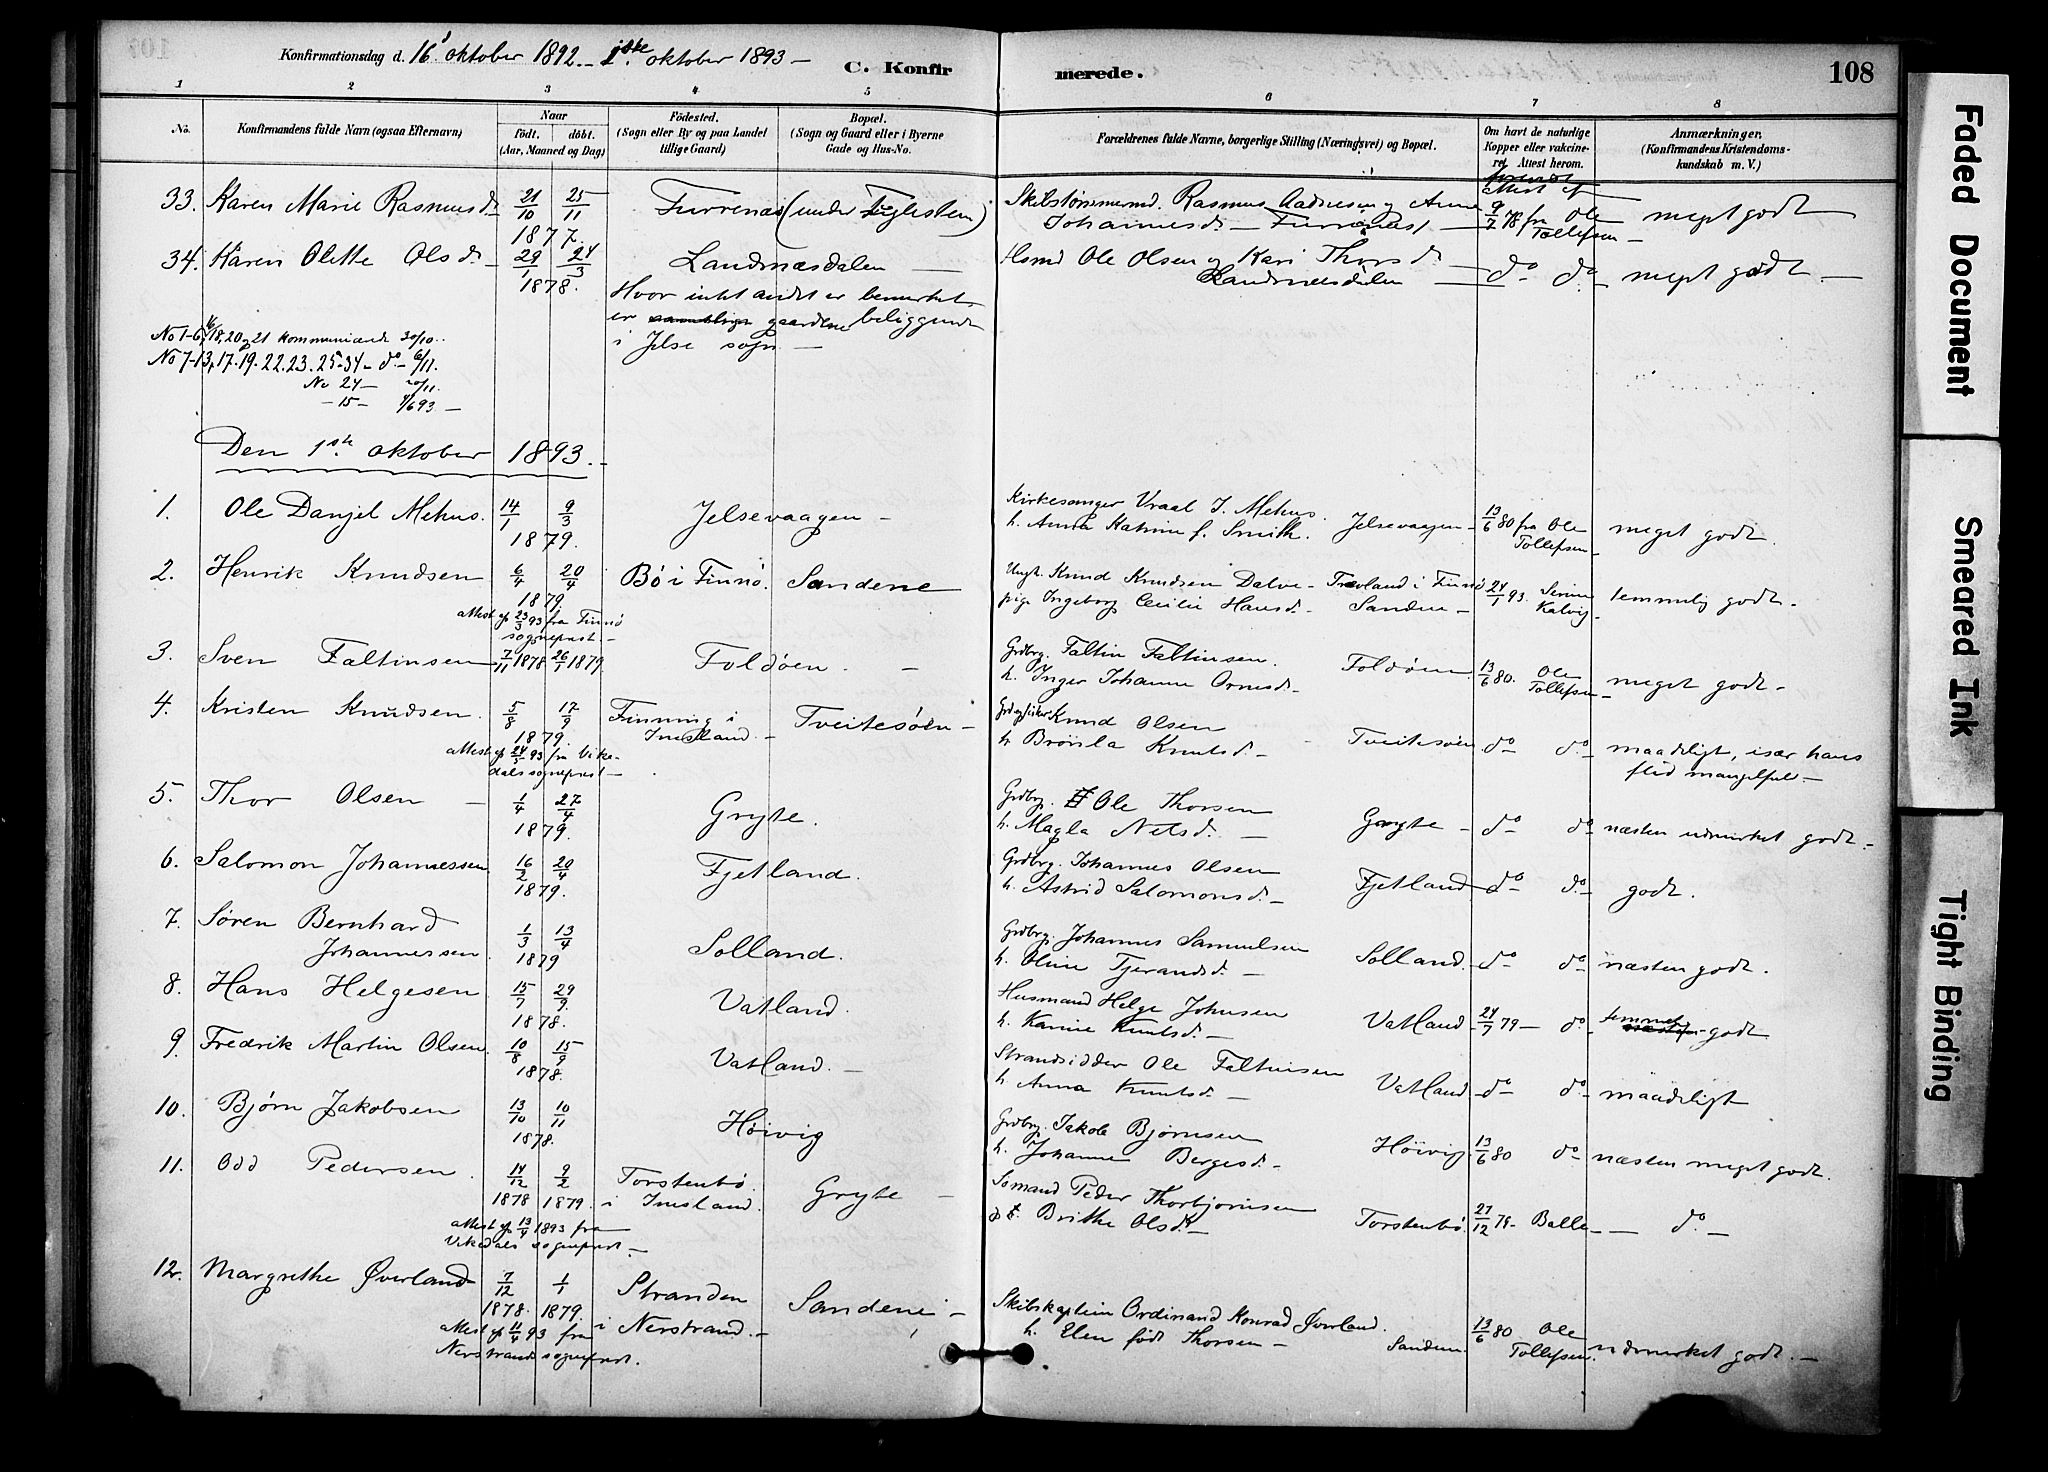 Konfirmationsdag d. 16 oktober 1892 – 1ste oktober 1893 – C. Konfirmerede. 108
1 2 3 4 5 6 7 8
No. Konfirmandens fulde Navn (ogsaa Efternavn) Naar født. døbt. (Aar, Maaned og Dag) Fødested. (Sogn eller By og paa Landet tillige Gaard) Bopæl. (Sogn og Gaard eller i Byerne Gade og Hus-No. Forældrenes fulde Navne, borgerlige Stilling (Næringsvei) og Bopæl. Om havt de naturlige Kopper eller vakcineret. Attest herom. Anmærkninger. (Konfirmandens Kristendomskundskab m. V.)
33. Karen Marie Rasmusd. 21/10 25/11 Furrenæs (under Teglesten) Skibstømmermd. Rasmus Aadnesen og Anne attest af 9/7 78 fra Ole meget godt
1877. Johannesd. – Furrenæs – Tollefsen –
34. Karen Olette Olsd. – 29/1 24/3 Landnæsdalen – Hsmd Ole Olsen og Kari Thorsd. – do do – meget godt –
1878. Landnæsdalen –
Hvor intet andet er bemærket
er gaardene beliggende
i Jelse sogn –
No 1-6, 16, 18, 20 og 21 kommunicerede 30/10.
No 7-13, 17. 19. 22. 23. 25-34 – do – 6/11.
No 24 – 20/11.
– 15 – 4/6 93 –
Den 1ste oktober 1893. –
1. Ole Danjel Mehus. 14/1 9/3 Jelsevaagen – Kirkesanger Vraal I. Mehus. Jelsevaagen – 13/6 80 fra Ole meget godt.
1879. h. Anna Katrine f. Smith. Tollefsen –
2. Henrik Knudsen 6/4 20/4 Bø i Finnø. Sandene Ungk. Knud Knudsen Dalve – Trovland i Finnø 24/1 93. Kalvig temmelig godt –
1879 pige Ingeborg Cecilie Hansd. – Sanden –
attest af 23/3 93 fra Finnø
sognepræst. –
3. Sven Faltinsen 7/11 1878 26/1 1879 Foldøen. – Grdbrg. Faltin Faltinsen. Foldøen 13/6 80. Ole meget godt –
h. Inger Johanne Ormsd. – Tollefsen –
4. Kristen Knudsen. 5/8 17/9 Finning i Tveitesøen – Knud Olsen Tveitesøen do – do – maadeligt, især hans
1879. Imsland. – h. Brønla Knutsd. – flid mangelfuld –
attest af 24/5 93 fra Vike-
dals sognepræst –
5. Thor Olsen – 1/4 27/4 Gryte. Grdbrg. Ole Thorsen Gryte – do – do – næsten udmerket godt –
1879. h. Magla Nelsd. –
6. Salomon Johannessen 16/2 20/4 Fjetland. Grdbrg. Johannes Olsen Fjetland do – do – godt.
1879. h. Astrid Salomonsd. –
7. Søren Bernhard 1/3 13/4 Solland. Grdbrg. Johannes Samuelsen Solland. – do – do – næsten godt.
Johannessen 1879 h. Oline Tjerandsd. –
8. Hans Helgesen 15/7 29/9 Vatland. Husmand Helge Johnsen Vatland – 24/7 79 – do – temmel. godt
1878. h. Karine Knutsd. –
9. Fredrik Martin Olsen 10/8 15/9 Vatland. – Strandsidder Ole Faltinsen Vatland do – do – maadeligt
1878. h. Anna Knutsd. –
10. Bjørn Jakobsen 13/10 10/11 Høivig Grdbrg. Jakob Bjørnsen Høivig 13/6 80 do – næsten meget godt.
1878. h. Johanne Bergesd. –
11. Odd Pedersen. 14/12 9/2 Torstenbø Gryte – Sømand Peder Thorbjørnsen Torstenbø 27/12 79 – Balle – do. –
1878 1879. i Imsland. Brithe Olsd. –
attest af 13/4 1893 fra
Vikedals sognepræst –
12. Margrethe Øverland 7/12 1/1 Stranden Sandene – Skibskaptein Ordinand Konrad Øverland. 13/6 80 Ole udmerket godt. –
1878. 1879. i Nerstrand. – h. Elen født Thorsen – Sanden Tollefsen.
attest af 11/4 93 fra
Nerstrands sognepræst.
Faded Document
Smeared Ink
Tight Binding